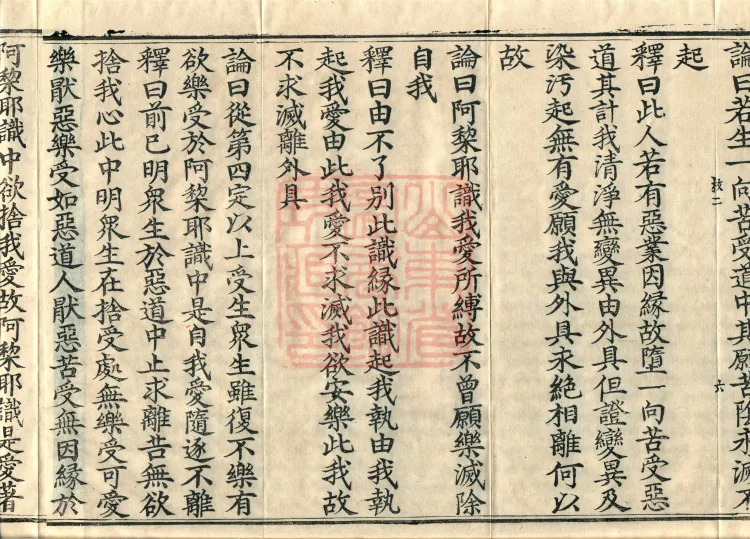 論曰若生一向苦受道中其願苦陰永滅不
起
二
六
釋曰此人若有惡業因緣故墮一向苦受惡
道其計我清淨無變異由外具但證變異及
染汚起無有愛願我與外具永絕相離何以
故
論曰阿黎耶識我愛所縛故不曾願樂滅除
自我
釋曰由不了別此識緣此識起我執由我執
起我愛由此我愛不求滅我欲安樂此我故
不求滅離外具
論曰從第四定以上受生衆生雖復不樂有
欲樂受於阿黎耶識中是自我愛隨逐不離
釋曰前已明衆生於惡道中止求離苦無欲
捨我心此中明衆生在捨受處無樂受可愛
樂猒惡樂受如惡道人猒惡苦受無因緣於
阿黎耶識中欲捨我愛故阿黎耶識是愛著